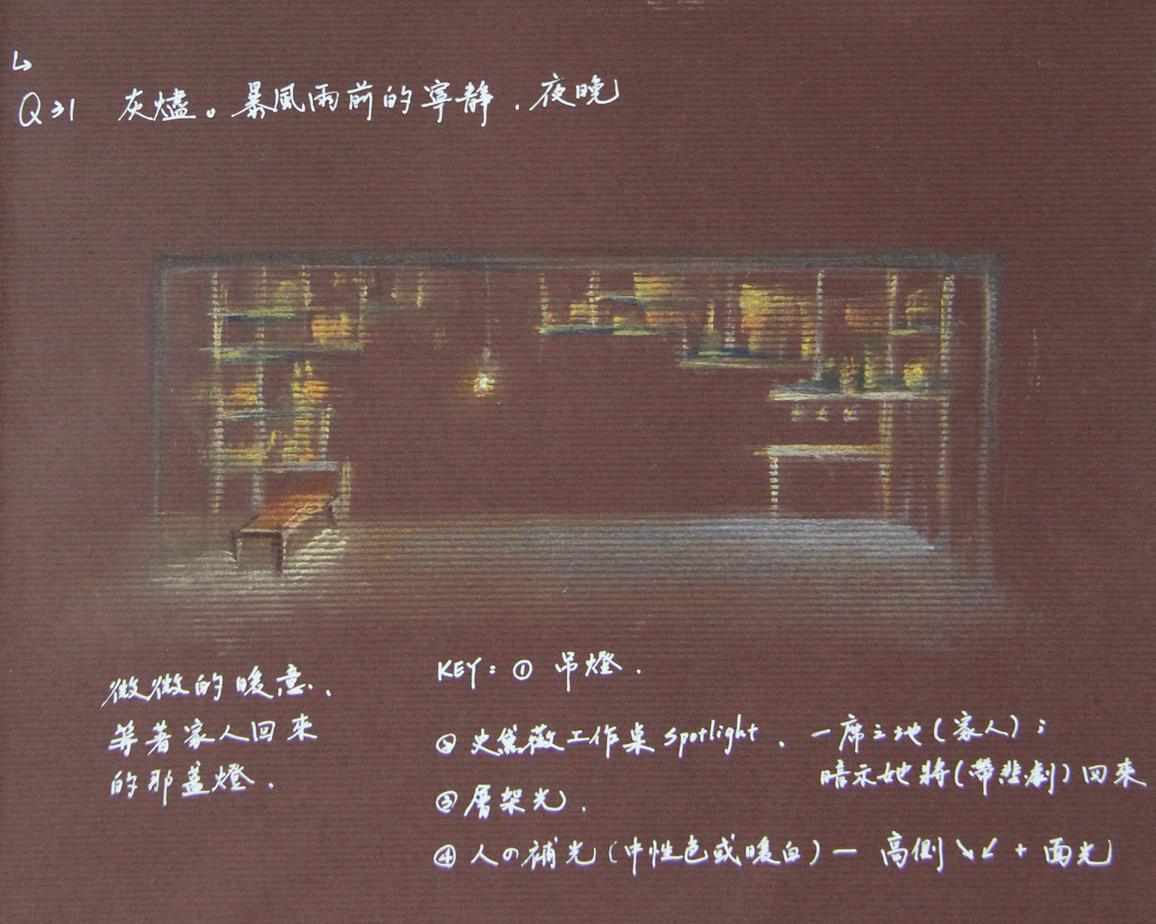 ↳
Q31 灰燼。暴風雨前的寧靜．夜晚
微微的暖意．
等著家人回來
的那盞燈．
KEY：① 吊燈．
② 史黛薇工作桌 spotlight．一席之地（家人）；
暗示她將（帶悲劇）回來
③ 層架光．
④ 人の補光（中性色或暖白）— 高側 ↘↙ + 面光